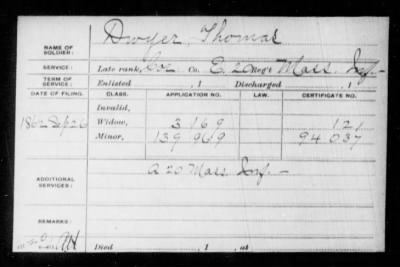 NAME OF SOLDIER: Dwyer, Thomas
SERVICE: Late rank, Co. E, 20 Reg't Mass. Inf.
TERM OF SERVICE: Enlisted , 1 Discharged , 1
DATE OF FILING. CLASS. APPLICATION NO. LAW. CERTIFICATE NO.
Invalid,
1862 Sep 26 Widow, 3 169 121
Minor, 139 969 94 037
ADDITIONAL SERVICES: A 20 Mass Inf.
REMARKS:
Died , 1 , at